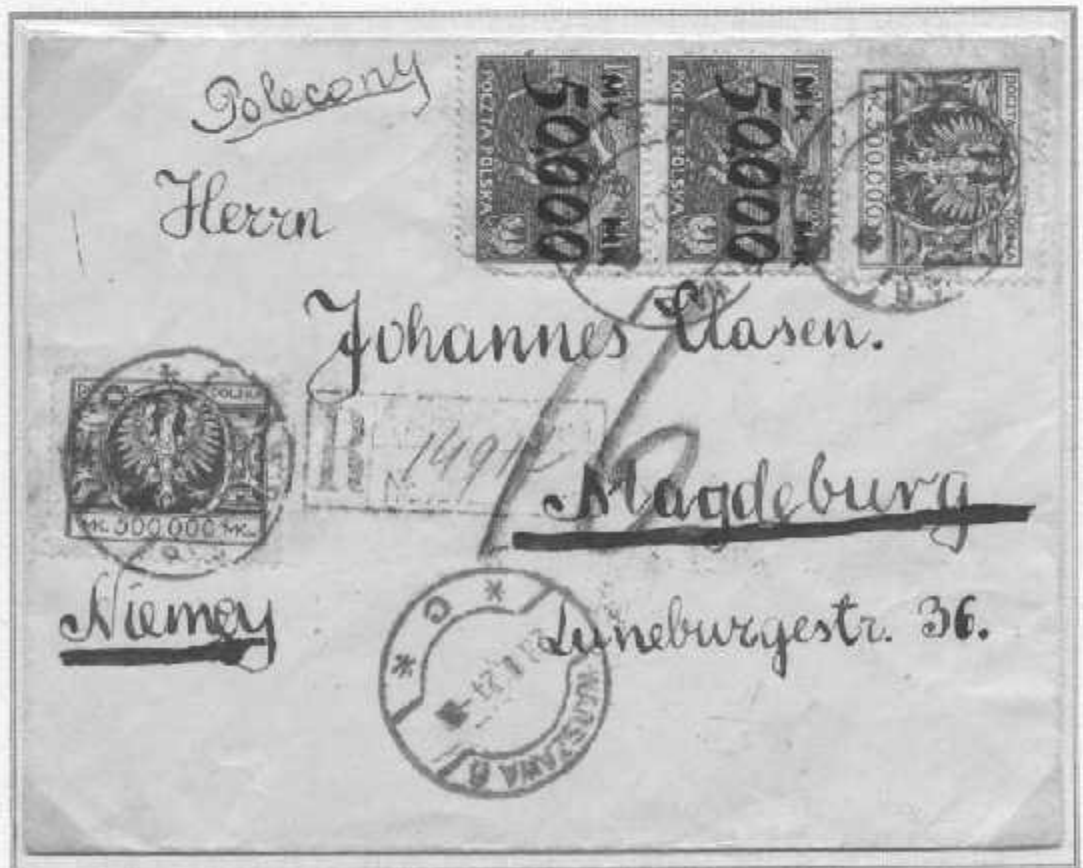 Polecony
POCZTA POLSKA
Mk 50,000 Mk
POCZTA POLSKA
Mk 50,000 Mk
MK. 500,000
Herrn
Johannes Clasen.
POLSKA
MK. 500,000 MK.
R
No
Magdeburg
Niemcy
Luneburgestr. 36.
* C *
WARSZAWA